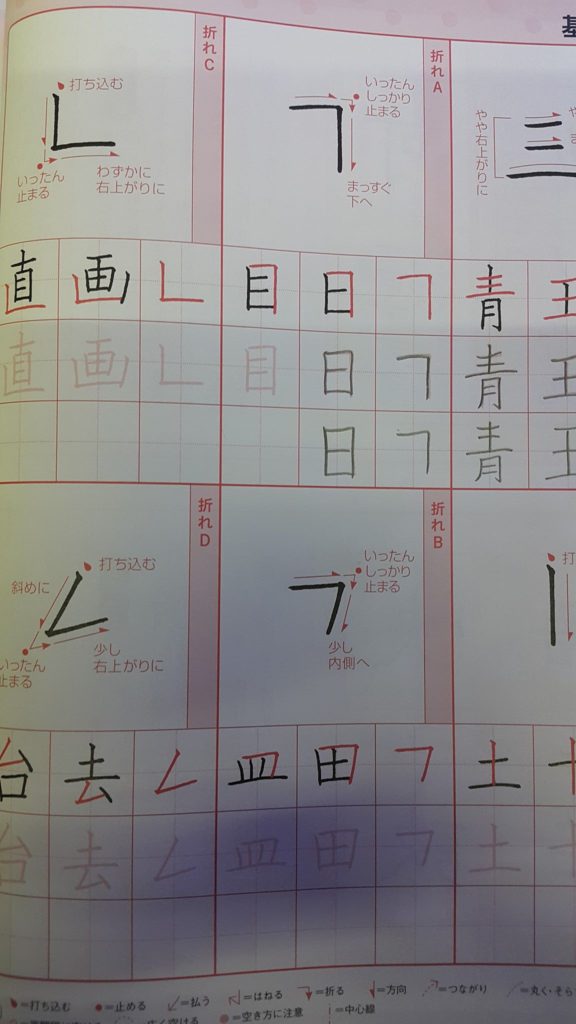 折れA
いったん
しっかり
止まる
まっすぐ
下へ
折れC
打ち込む
いったん
止まる
わずかに
右上がりに
やや右上がりに
青
青
青
日
目
日
目
日
画
直
画
直
折れB
いったん
しっかり
止まる
少し
内側へ
折れD
打ち込む
斜めに
いったん
止まる
少し
右上がりに
土
土
田
皿
田
皿
去
台
去
台
=打ち込む
=止める
=払う
=はねる
=折る
=方向
=つながり
=空き方に注意
=中心線